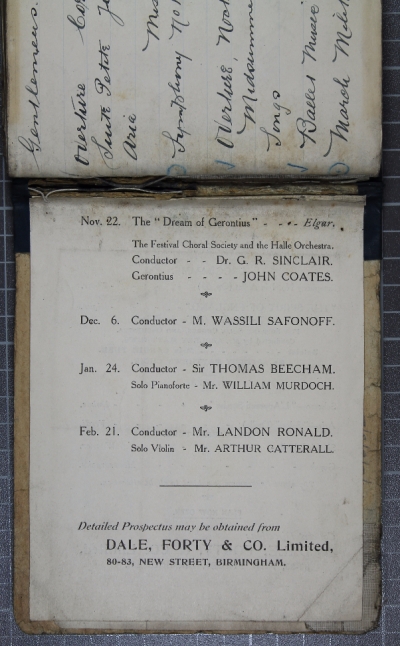 Gentlemens.
Overture
Suite Petite
Aria
Symphony No
Overture,
Midsummer
Songs
Ballet Music
March
Nov. 22. The "Dream of Gerontius" - - - Elgar.
The Festival Choral Society and the Halle Orchestra.
Conductor - - Dr. G. R. SINCLAIR.
Gerontius - - - - JOHN COATES.
Dec. 6. Conductor - M. WASSILI SAFONOFF.
Jan. 24. Conductor - Sir THOMAS BEECHAM.
Solo Pianoforte - Mr. WILLIAM MURDOCH.
Feb. 21. Conductor - Mr. LANDON RONALD.
Solo Violin - Mr. ARTHUR CATTERALL.
Detailed Prospectus may be obtained from
DALE, FORTY & CO. Limited,
80-83, NEW STREET, BIRMINGHAM.